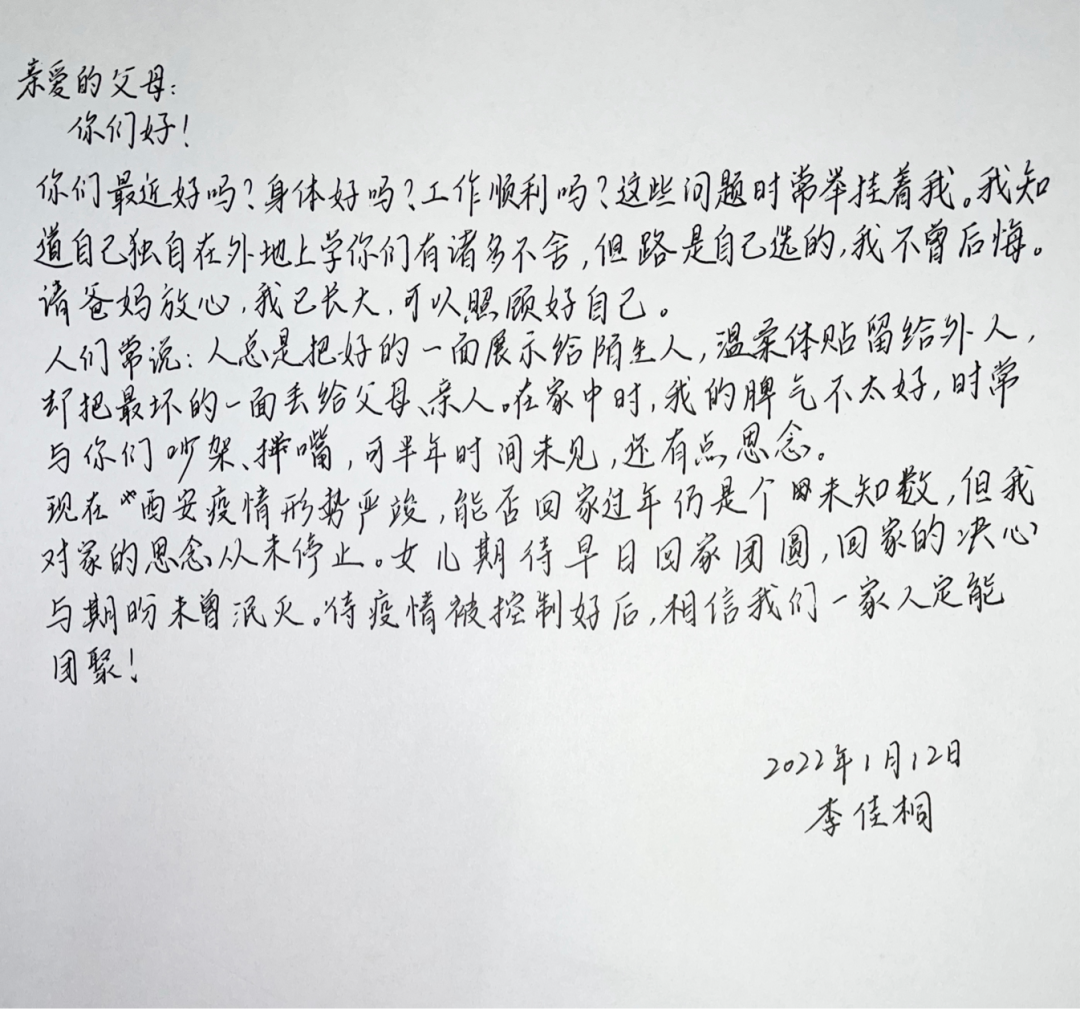 亲爱的父母：
你们好！
你们最近好吗？身体好吗？工作顺利吗？这些问题时常牵挂着我。我知
道自己独自在外地上学你们有诸多不舍，但路是自己选的，我不曾后悔。
请爸妈放心，我已长大，可以照顾好自己。
人们常说：人总是把好的一面展示给陌生人，温柔体贴留给外人，
却把最坏的一面丢给父母、亲人。在家中时，我的脾气不太好，时常
与你们吵架、拌嘴，可半年时间未见，还有点思念。
现在西安疫情形势严竣，能否回家过年仍是个未知数，但我
对家的思念从未停止。女儿期待早日回家团圆，回家的决心
与期盼未曾泯灭。待疫情被控制好后，相信我们一家人定能
团聚！
2022年1月12日
李佳桐